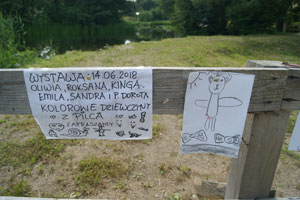 WYSTAWA: 14.06.2018
OLIWIA, ROKSANA, KINGA,
EMILA, SANDRA I P. DOROTA
KOLOROWE DZIEWCZYNY
Z PILCA
ZAPRASZAMY